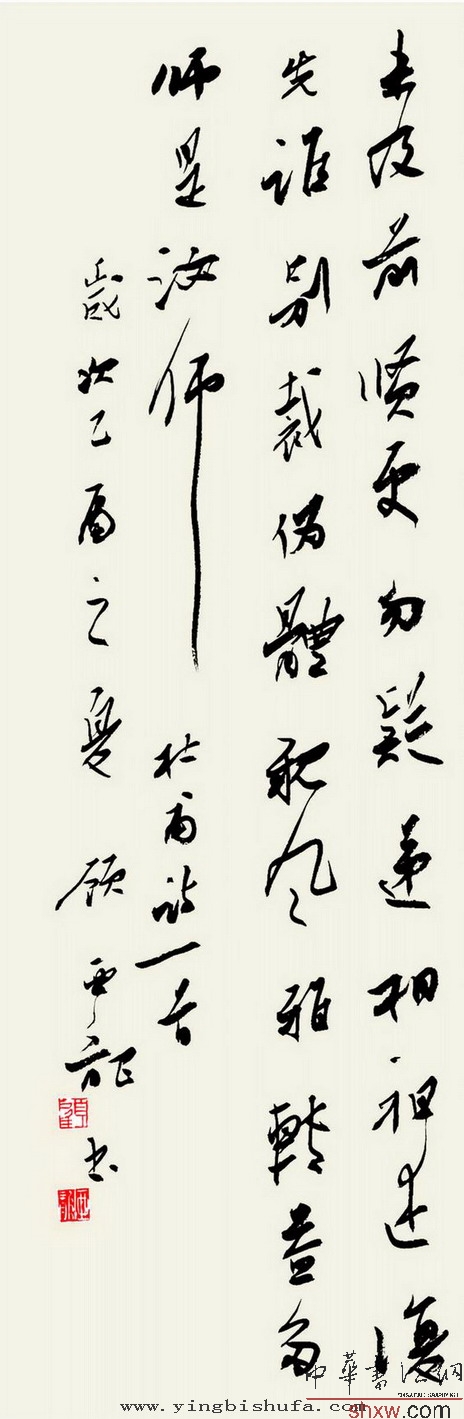 未及前賢更勿疑遞相祖述復
先誰別裁偽體親風雅轉益多
師是汝師 杜甫詩一首
歲次乙酉之夏 顧亞龍書
中華書法網
www.yingbishufa.com
shxw.com